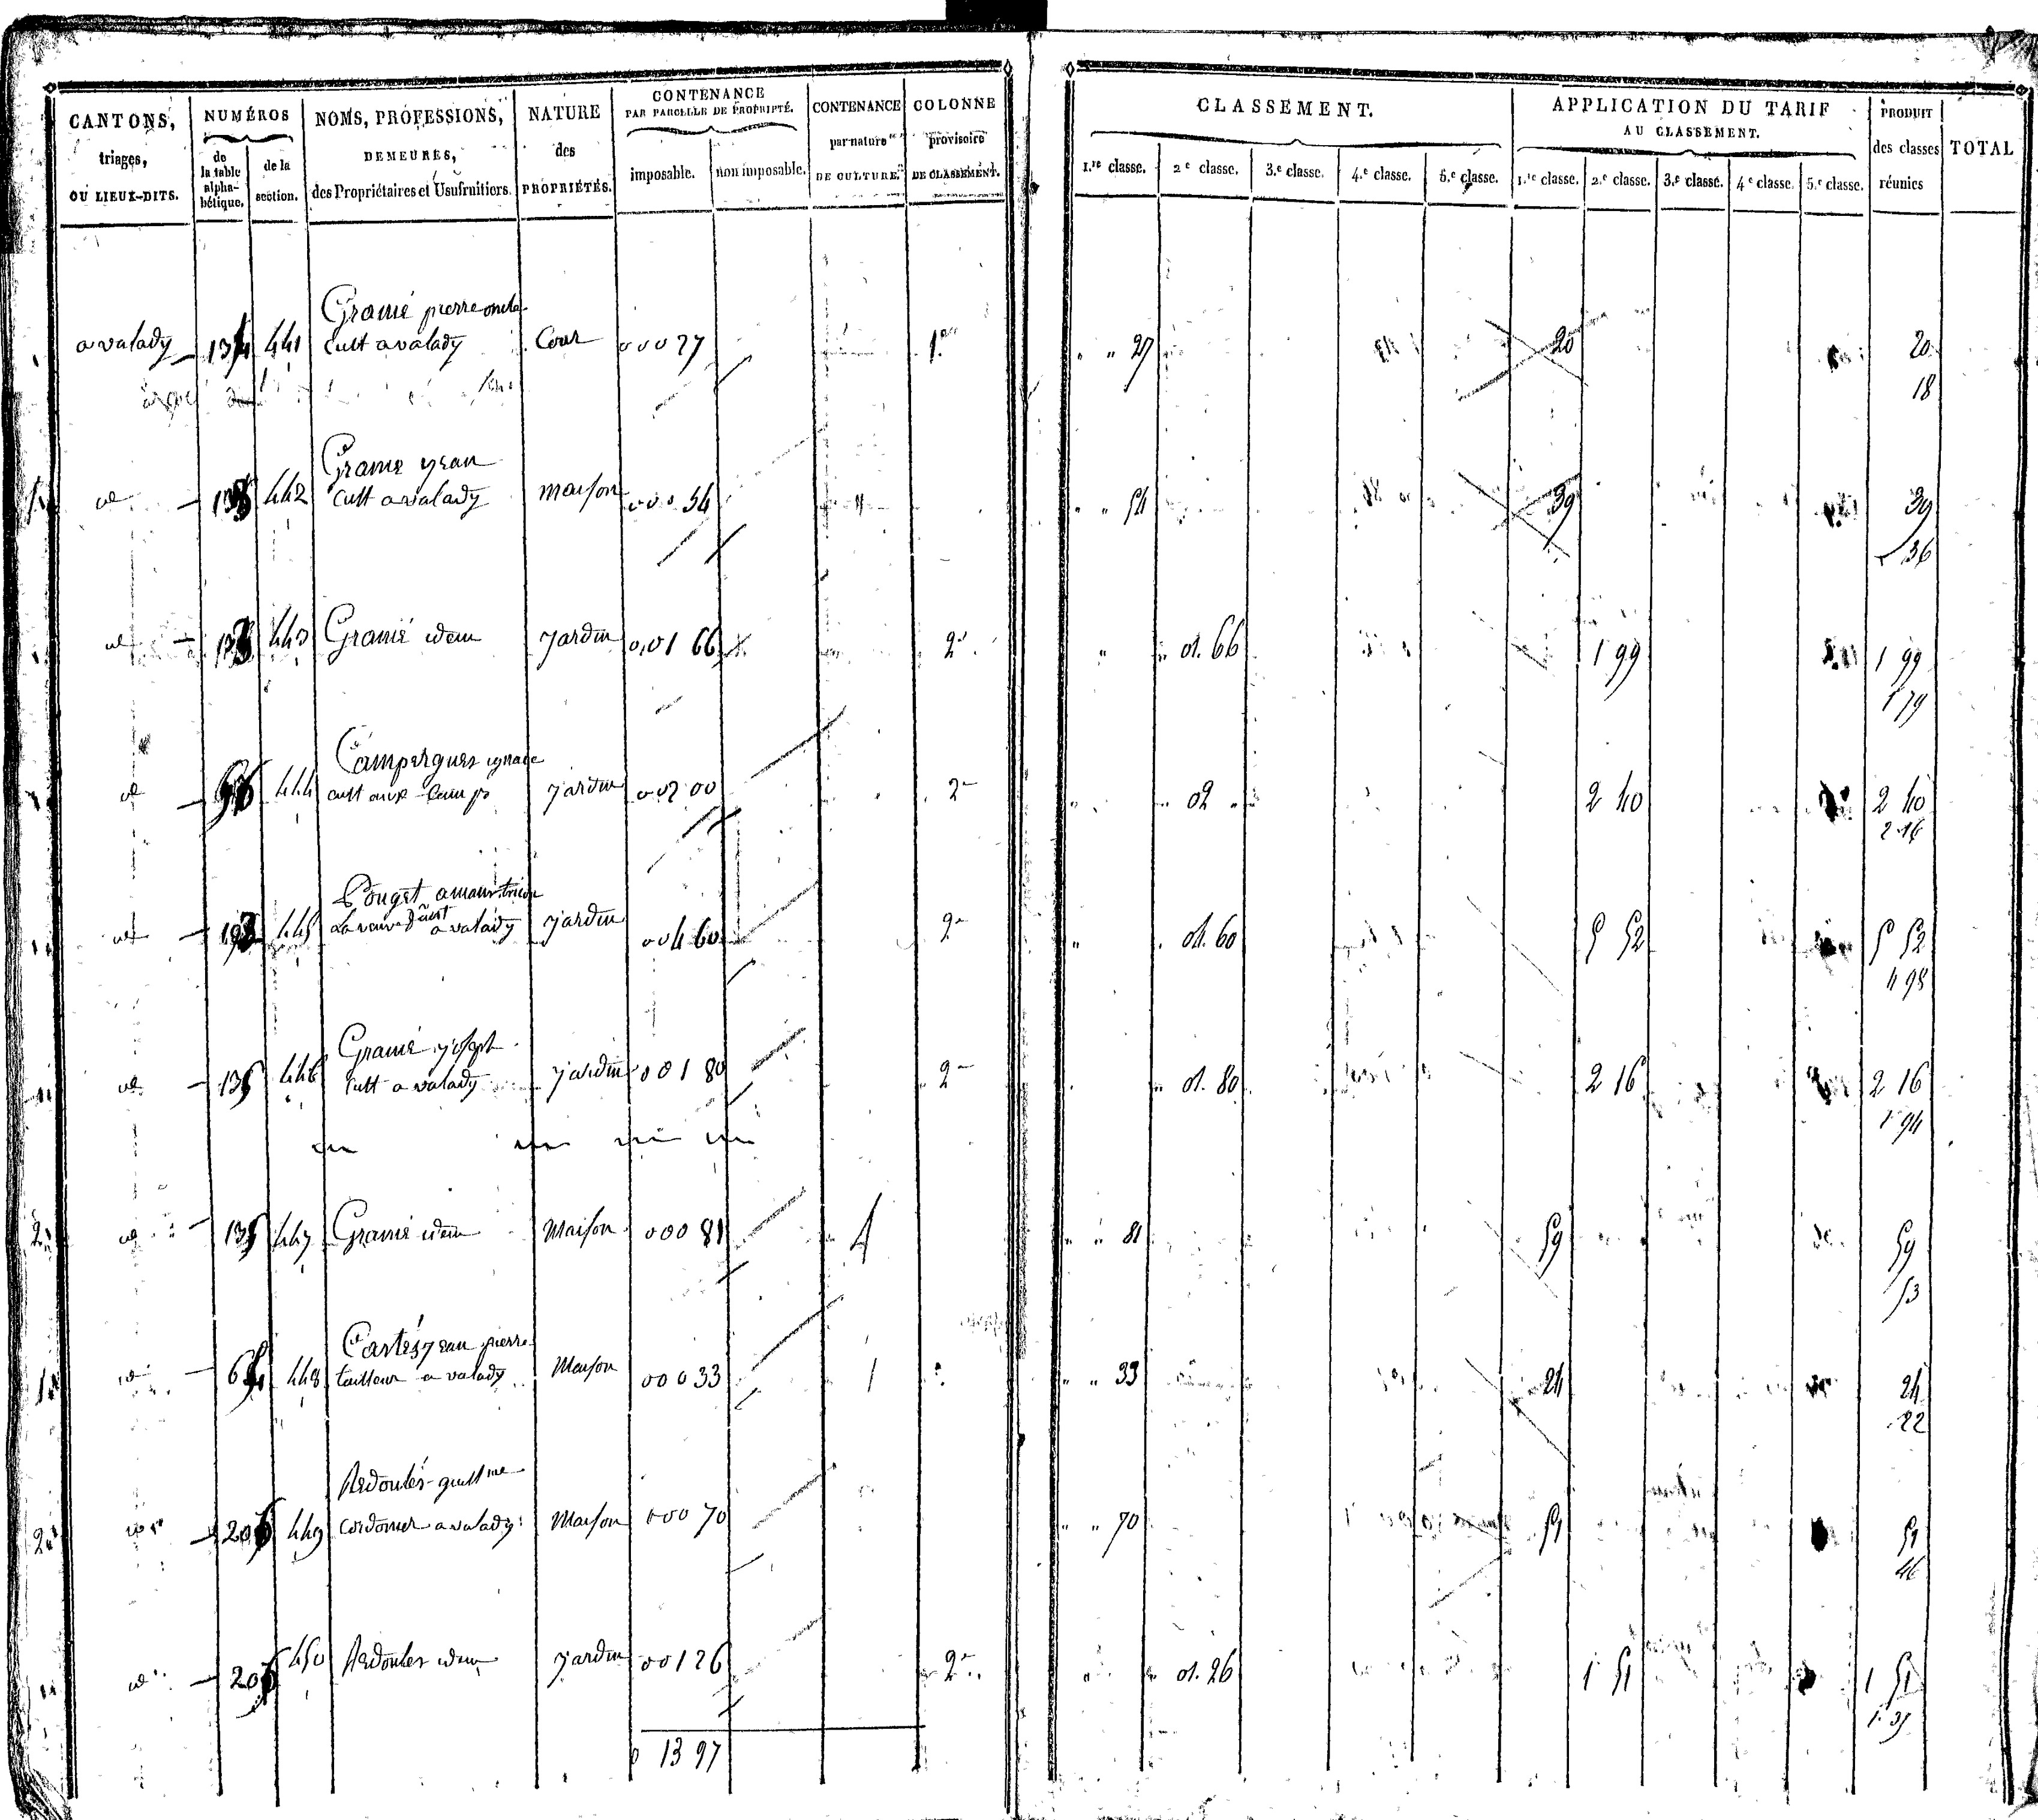 CANTONS, triages, OU LIEUX-DITS. | NUMÉROS de la table alphabétique. | de la section. | NOMS, PROFESSIONS, DEMEURES, des Propriétaires et Usufruitiers. | NATURE des PROPRIÉTÉS. | CONTENANCE PAR PARCELLE DE PROPRIÉTÉ. imposable. | non imposable. | CONTENANCE par nature DE CULTURE. | COLONNE provisoire DE CLASSEMENT. | CLASSEMENT. 1.re classe. | 2e classe. | 3.e classe. | 4.e classe. | 5.e classe. | APPLICATION DU TARIF AU CLASSEMENT. 1.re classe. | 2.e classe. | 3.e classe. | 4e classe. | 5.e classe. | PRODUIT des classes réunies | TOTAL
Gramé pierre
a valady 441 cult a valady Cour 0 00 27 1re " " 27 20 20
18
Gramé jean
id 442 cult a valady maison 0 00 54 " " 54 39 39
36
id 443 Gramé idem jardin 0 01 66 2e " 01. 66 1 99 1 99
1 79
Campergues ignace
id 96 444 cult aux Camps jardin 0 02 00 2e 02 " 2 40 2 40
2 16
Pouget amans
id 193 445 La veuve a valady jardin 0 04 60 2e " 04. 60 5 52 5 52
4 98
Gramé joseph
id 135 446 cult a valady jardin 0 01 80 2e 01. 80 2 16 2 16
1 94
2 id 135 447 Gramé idem Maison 0 00 81 " " 81 59 59
53
Cartés jean pierre
1 id 448 tailleur a valady Maison 0 00 33 1 " " 33 24 24
22
Redoulés guillme
2 id 206 449 cordonier a valady Maison 0 00 70 " " 70 51 51
46
id 206 450 Redoules idem jardin 0 01 26 2e 01. 26 1 51 1 51
0 13 97